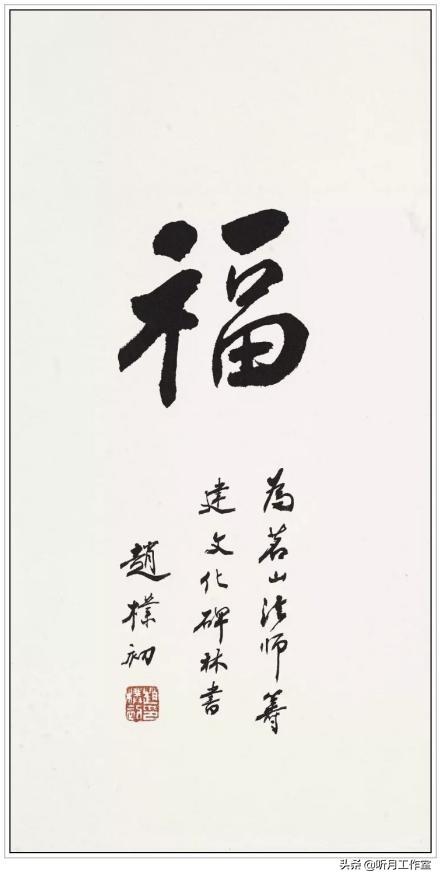 福
為茗山法师籌
建文化碑林書
趙樸初
头条 @听月工作室